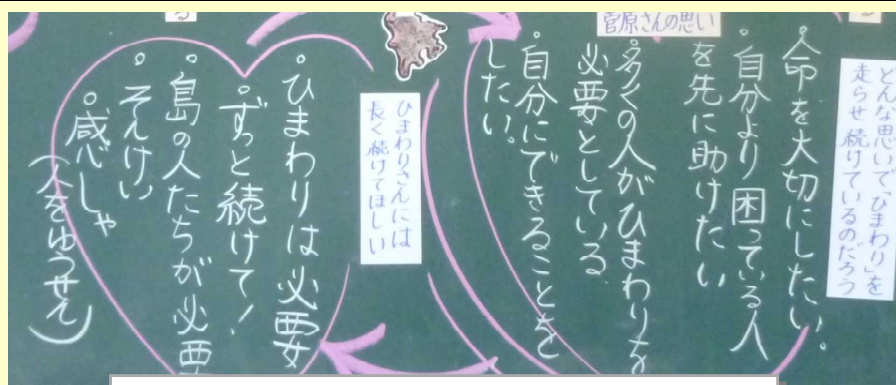 どんな思いで「ひまわり」を
走らせ続けているのだろう
菅原さんの思い
・命を大切にしたい。
・自分より困っている人
を先に助けたい
・多くの人がひまわりを
必要としている
・自分にできることを
したい。
ひまわりさんには
長く続けてほしい
・ひまわりは必要
・ずっと続けて！
・島の人たちが必要
・そんけい
・感しゃ
(人をゆうせん)
る